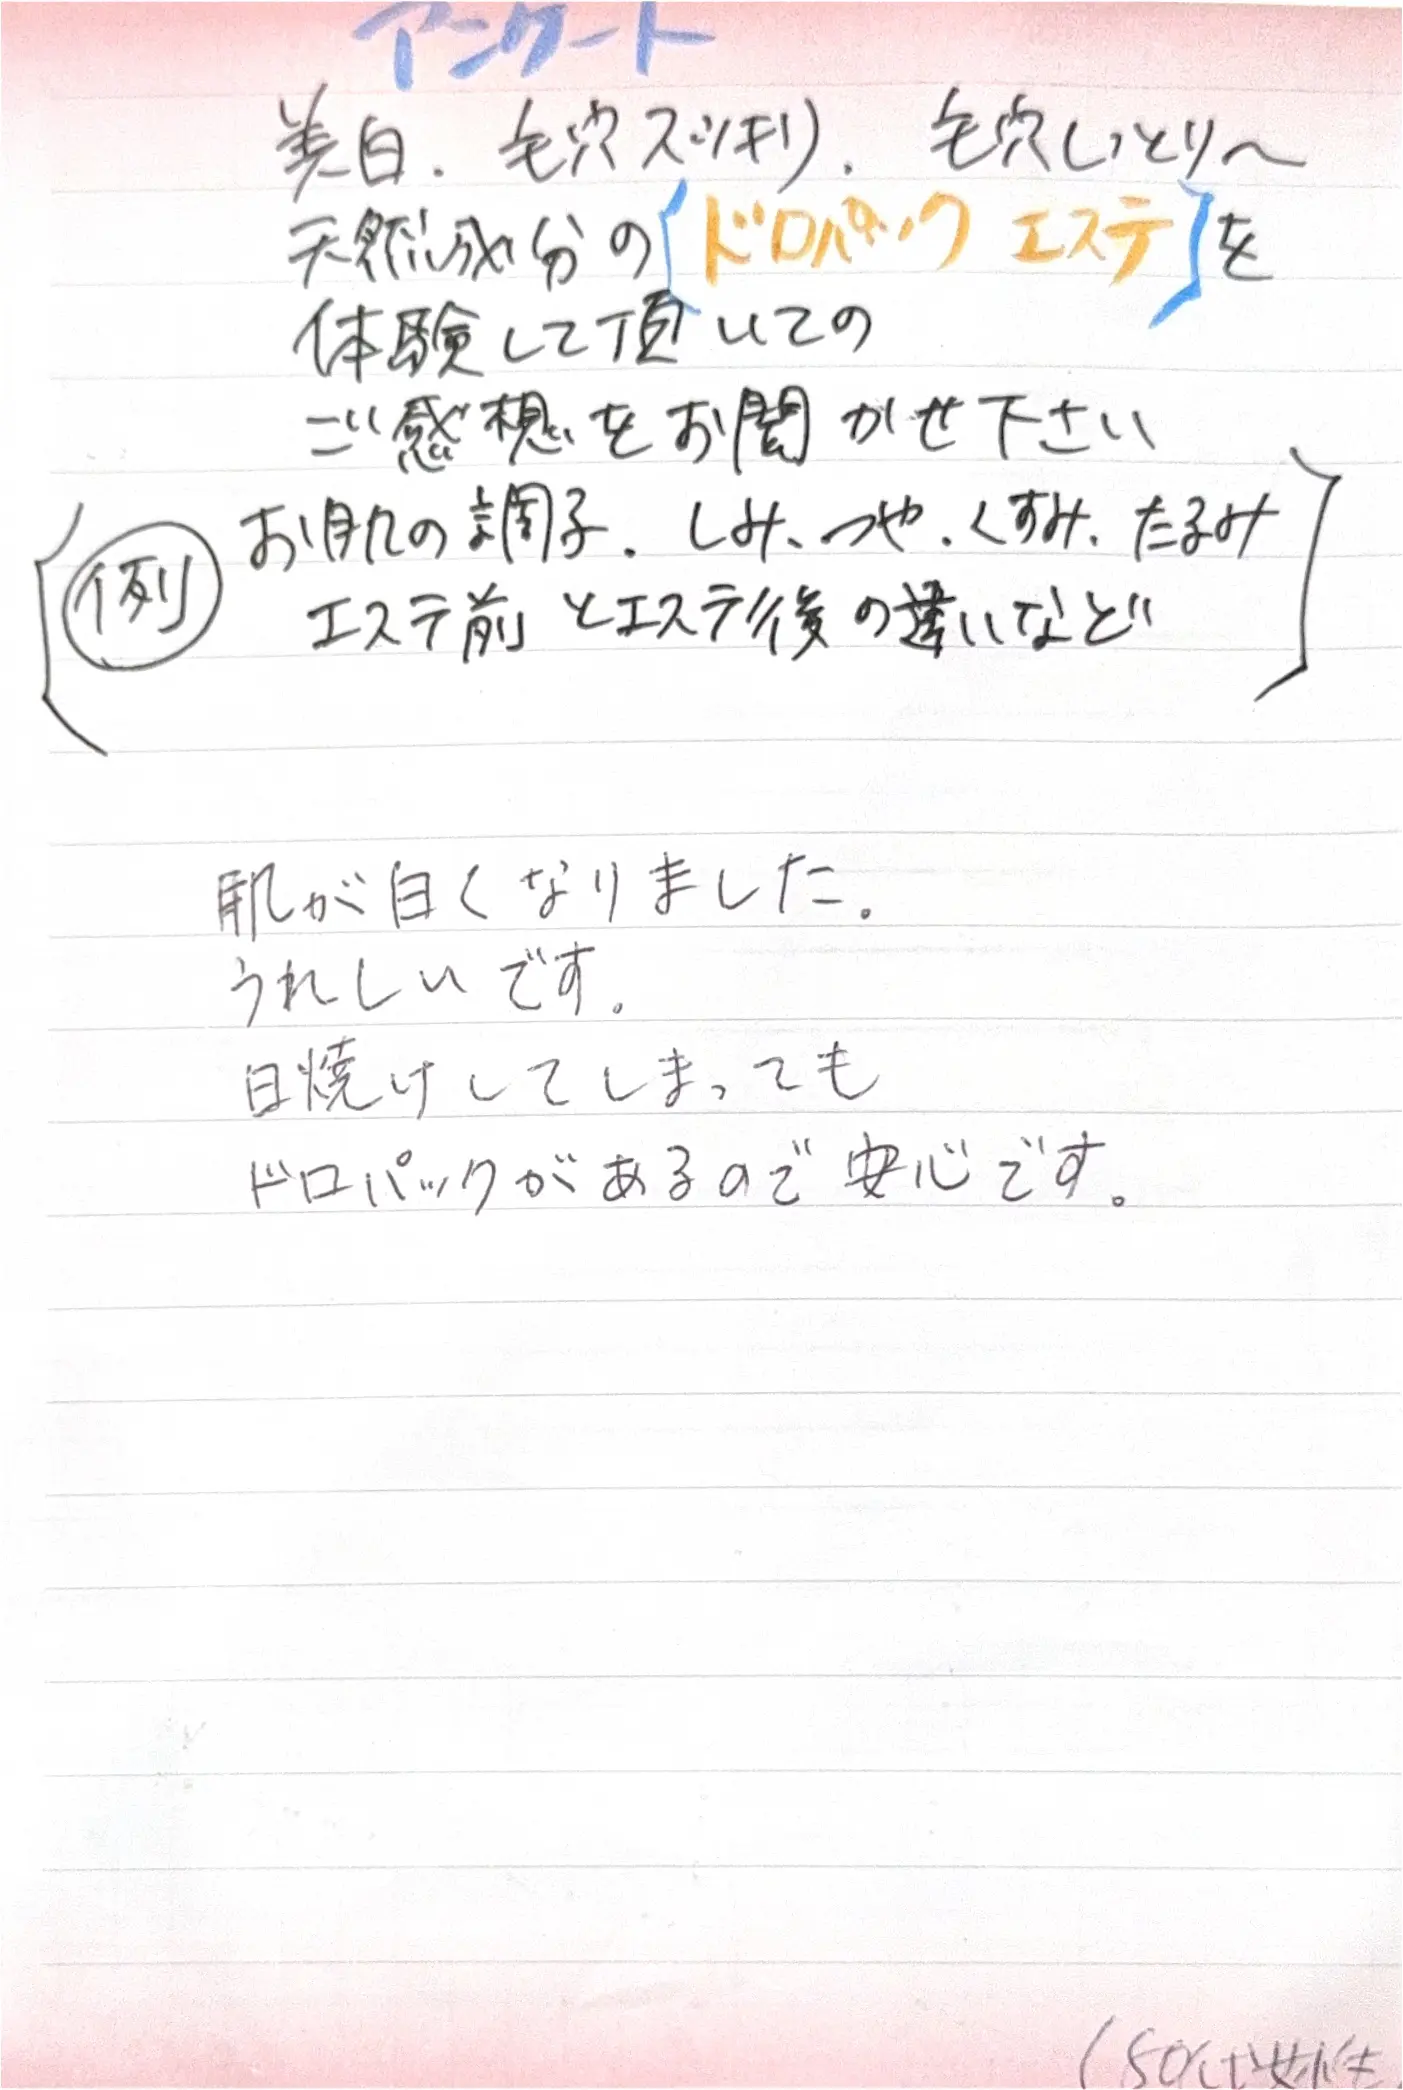 アンケート
美白. 毛穴スッキリ. 毛穴しっとり〜
天然成分の{ドロパック エステ}を
体験して頂いての
ご感想をお聞かせ下さい
(例) お肌の調子. しみ、つや、くすみ、たるみ
エステ前とエステ後の違いなど
肌が白くなりました。
うれしいです。
日焼けしてしまっても
ドロパックがあるので安心です。
(50代女性)